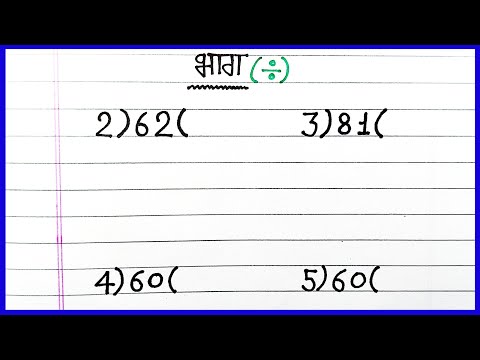 भाग (÷)
2)62( 3)81(
4)60( 5)60(